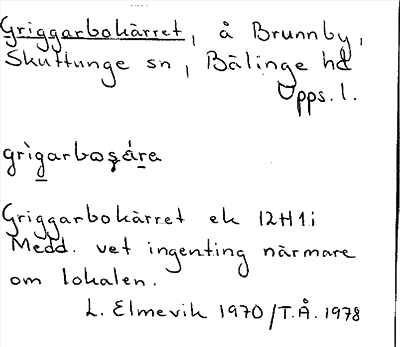 Griggarbokärret, å Brunnby,
Skuttunge sn, Bälinge hd
Upps. l.
grìgarboşá̱ra
Griggarbokärret ek 12H1i
Medd. vet ingenting närmare
om lokalen.
L. Elmevik 1970/T.Å. 1978